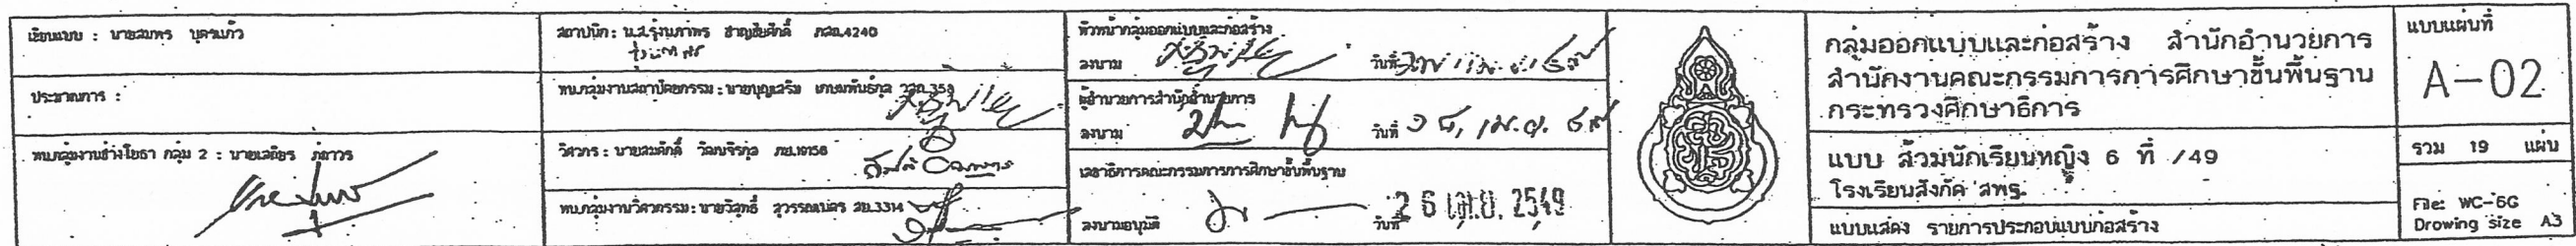 เขียนแบบ : นายสมพร บุตรแก้ว
ประมาณการ :
หน.กลุ่มงานช่างโยธา กลุ่ม 2 : นายเสถียร ภู่ถาวร
สถาปนิก : น.ส.รุ่งนภาพร ชาญชัยศักดิ์ ภสถ.4240
หน.กลุ่มงานสถาปัตยกรรม : นายบุญเสริม เกษมพันธ์กุล วสถ.353
วิศวกร : นายสมศักดิ์ ภย.19156
หน.กลุ่มงานวิศวกรรม : นายวิสุทธิ์ สุวรรณเนตร สย.3314
หัวหน้ากลุ่มออกแบบและก่อสร้าง
ลงนาม วันที่
ผู้อำนวยการสำนักอำนวยการ
ลงนาม วันที่
เลขาธิการคณะกรรมการการศึกษาขั้นพื้นฐาน
ลงนามอนุมัติ วันที่ 26 เม.ย. 2549
กลุ่มออกแบบและก่อสร้าง สำนักอำนวยการ
สำนักงานคณะกรรมการการศึกษาขั้นพื้นฐาน
กระทรวงศึกษาธิการ
แบบ ส้วมนักเรียนหญิง 6 ที่ /49
โรงเรียนสังกัด สพฐ.
แบบแสดง รายการประกอบแบบก่อสร้าง
แบบแผ่นที่
A-02
รวม 19 แผ่น
File: WC-6G
Drowing size A3